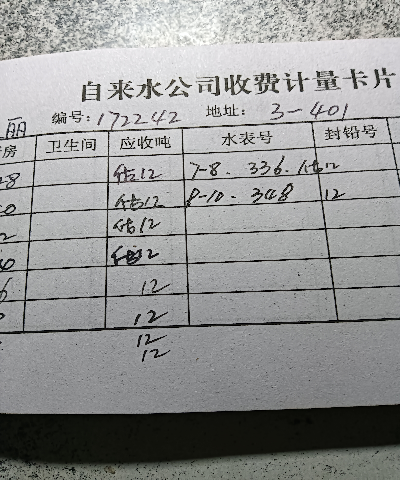 自来水公司收费计量卡片
丽 编号:172242 地址: 3-401
房 卫生间 应收吨 水表号 封铅号
8 估12 7-8. 336. 估12
0 估12 8-10. 348 12
2 估12
0 估12
6 12
12
12
12